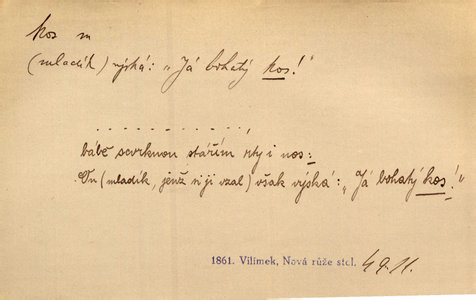 kos m
(mladík) výská: „Já bohatý kos!"
. . . . . . . . . . . . ,
bábě scvrknou stářím rty i nos:
On (mladík, jenž si ji vzal) však výská: „Já bohatý kos!"
1861. Vilímek, Nová růže stol. 49. 11.